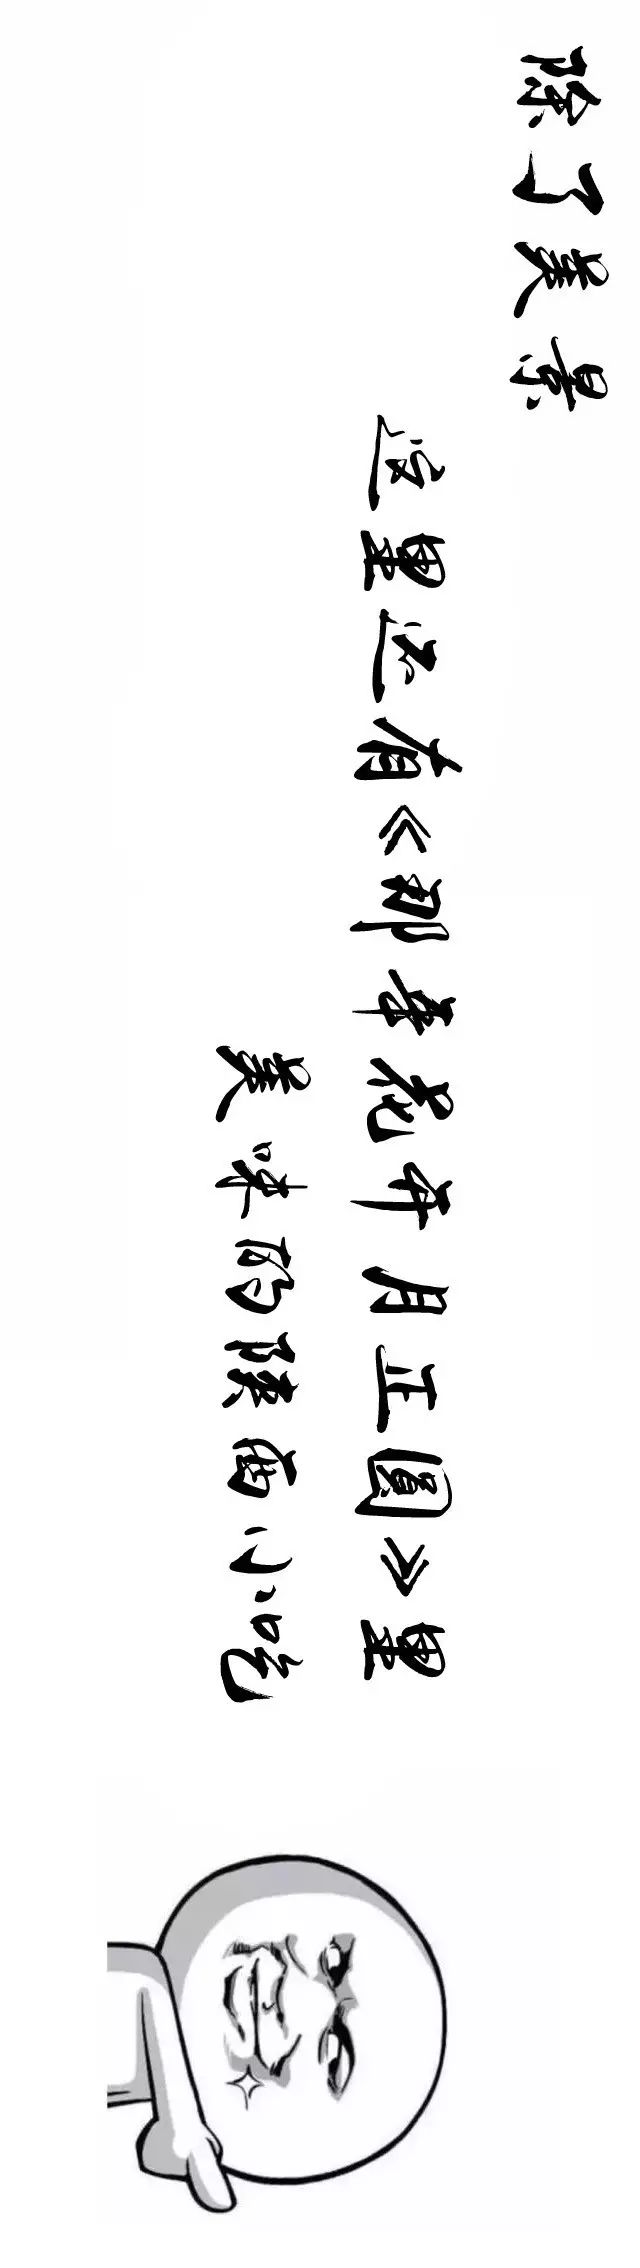 除了美景
这里还有《那年花开月正圆》里
美味的陕西小吃